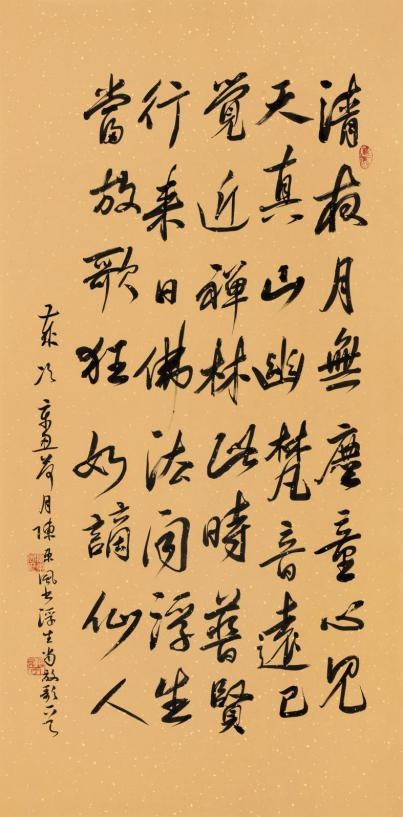 清夜月無塵童心見
天真山幽梵音遠已
覺近禪林此時普賢
行来日佛法同浮生
當放歌狂如謫仙人
歲次辛丑荷月陳亞風书浮生當放歌